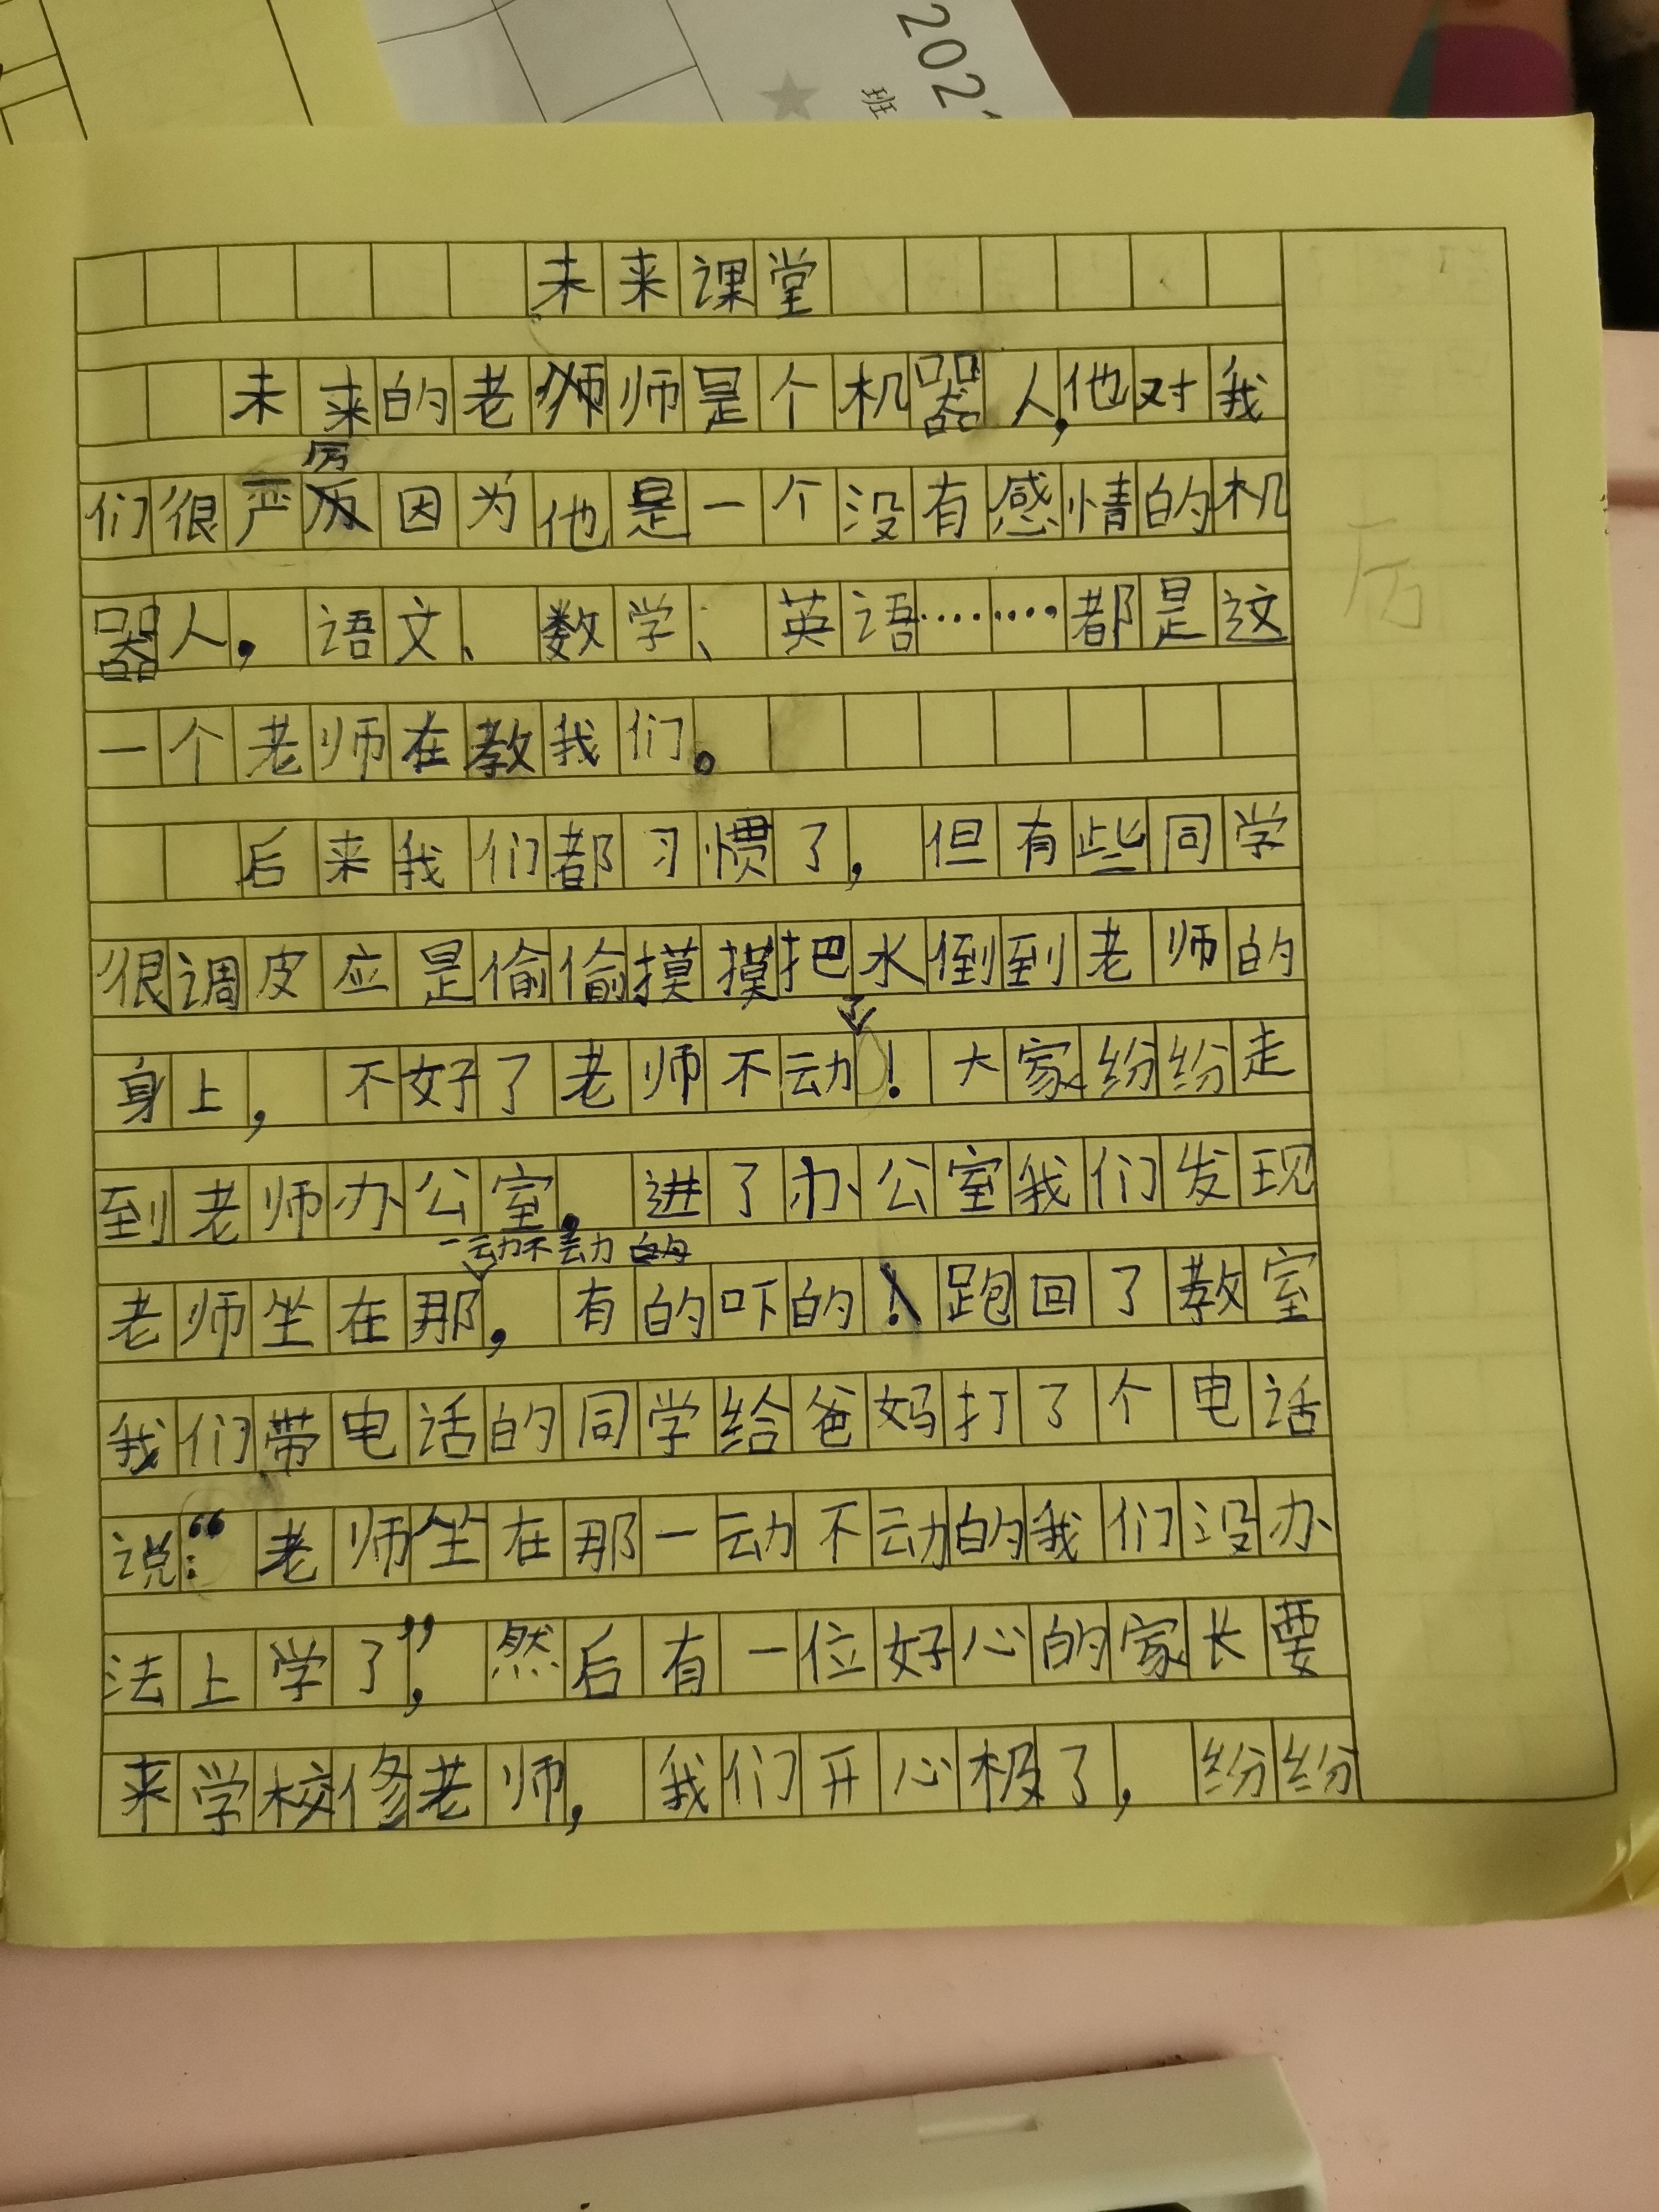 202
班
未来课堂
未来的老师是个机器人,他对我
们很严厉因为他是一个没有感情的机
器人，语文、数学、英语……都是这
一个老师在教我们。
后来我们都习惯了，但有些同学
很调皮应是偷偷摸摸把水倒到老师的
身上，不好了老师不动了！大家纷纷走
到老师办公室，进了办公室我们发现
老师坐在那一动不动的，有的吓的跑回了教室
我们带电话的同学给爸妈打了个电话
说：“老师坐在那一动不动的我们没办
法上学了”，然后有一位好心的家长要
来学校修老师，我们开心极了，纷纷
历